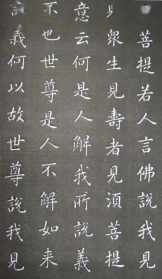 菩提若人言佛說我見
見眾生見壽者見須菩提
意云何是人解我所說義
不也世尊是人不解如來
說義何以故世尊說我見